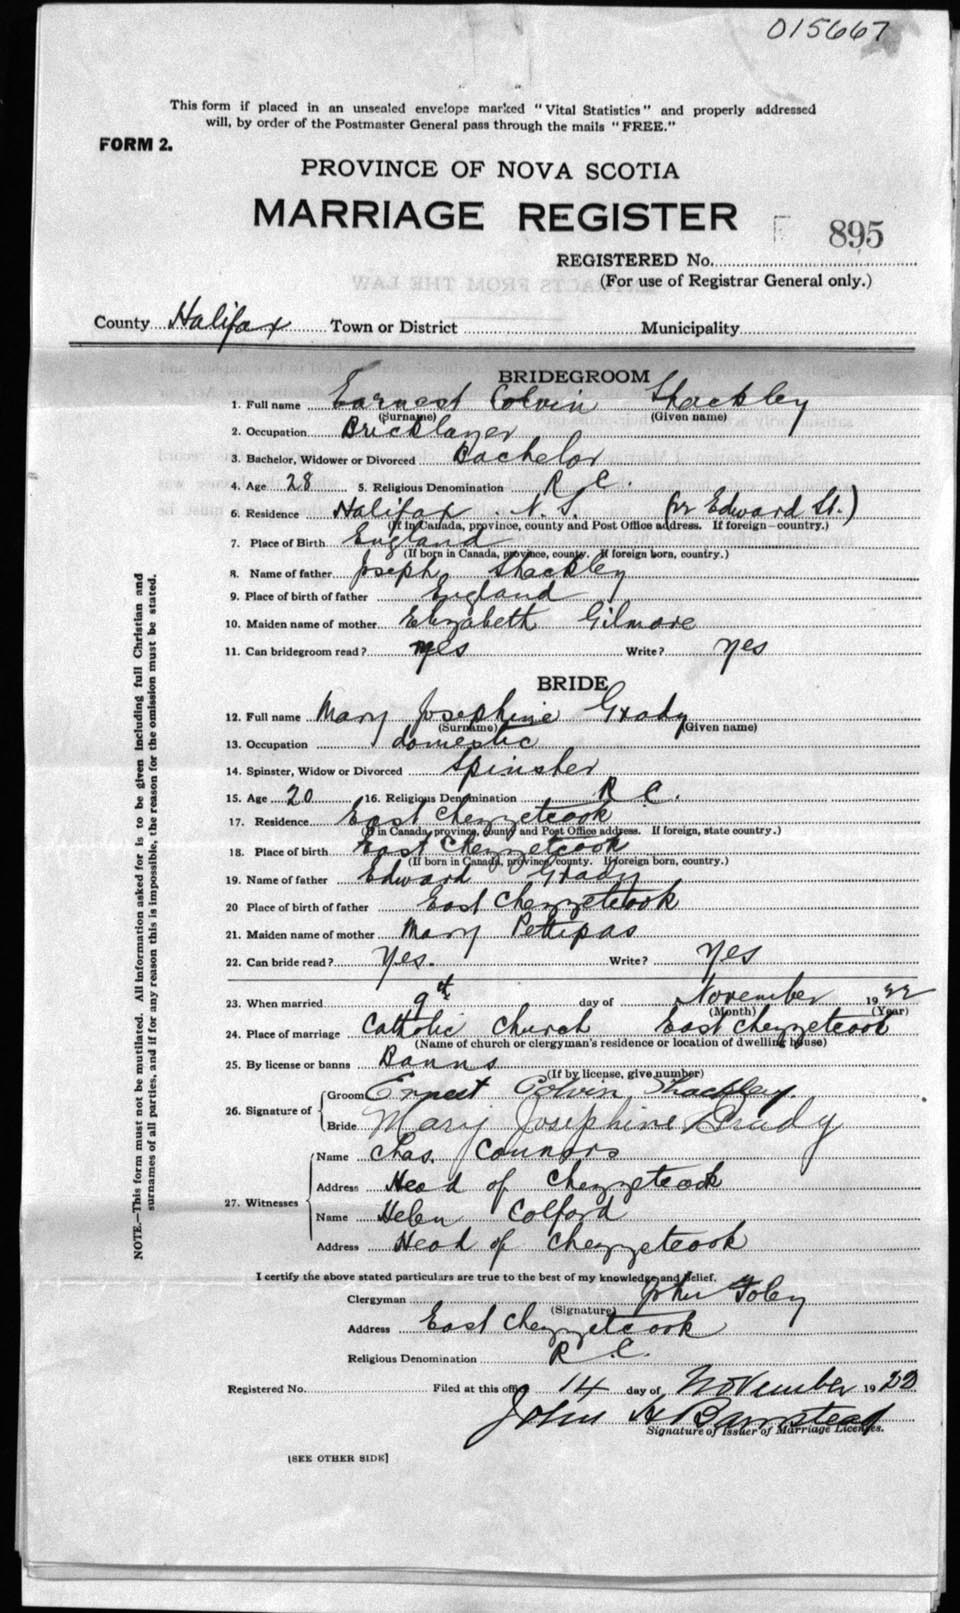 015667
This form if placed in an unsealed envelope marked "Vital Statistics" and properly addressed
will, by order of the Postmaster General pass through the mails "FREE."
FORM 2.
PROVINCE OF NOVA SCOTIA
MARRIAGE REGISTER
895
REGISTERED No.
(For use of Registrar General only.)
County Halifax Town or District Municipality
BRIDEGROOM
1. Full name Earnest Colvin Shackley
(Surname) (Given name)
2. Occupation Bricklayer
3. Bachelor, Widower or Divorced Bachelor
4. Age 28 5. Religious Denomination R C.
6. Residence Halifax N. S. Edward St.)
(If in Canada, province, county and Post Office address. If foreign-country.)
7. Place of Birth England
(If born in Canada, province, county. If foreign born, country.)
8. Name of father Joseph Shackley
9. Place of birth of father England
10. Maiden name of mother Elizabeth Gilmore
11. Can bridegroom read? yes Write? yes
BRIDE
12. Full name Mary Josephine Grady
(Surname) (Given name)
13. Occupation domestic
14. Spinster, Widow or Divorced Spinster
15. Age 20 16. Religious Denomination R C.
17. Residence East Chezzetcook
(If in Canada, province, county and Post Office address. If foreign, state country.)
18. Place of birth East Chezzetcook
(If born in Canada, province, county. If foreign born, country.)
19. Name of father Edward Grady
20 Place of birth of father East Chezzetcook
21. Maiden name of mother Mary Pettipas
22. Can bride read? Yes. Write? Yes
23. When married 9th day of November 1922
(Month) (Year)
24. Place of marriage Catholic Church East Chezzetcook
(Name of church or clergyman's residence or location of dwelling house)
25. By license or banns Banns
(If by license, give number)
26. Signature of
Groom Ernest Colvin Shackley.
Bride Mary Josephine Grady
27. Witnesses
Name Chas. Connors
Address Head of Chezzetcook
Name Helen Colford
Address Head of Chezzetcook
I certify the above stated particulars are true to the best of my knowledge and belief.
Clergyman John Foley
(Signature)
Address East Chezzetcook
Religious Denomination R C.
Registered No. Filed at this office 14 day of November 1922
John H Barnstead
Signature of Issuer of Marriage Licenses.
[SEE OTHER SIDE]
NOTE.—This form must not be mutilated. All information asked for is to be given including full Christian and
surnames of all parties, and if for any reason this is impossible, the reason for the omission must be stated.